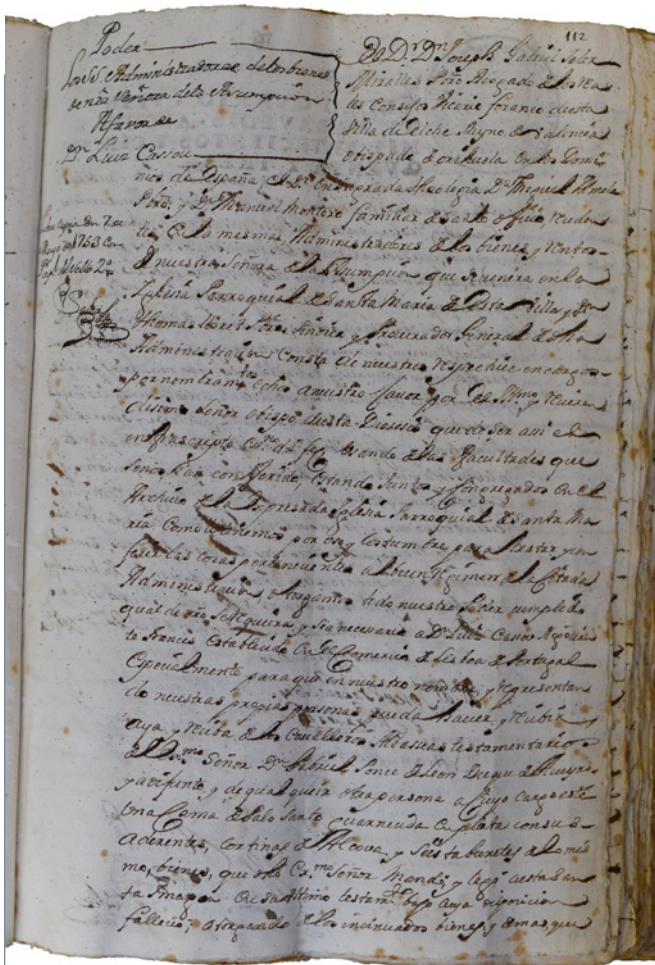 112
Poder
Los SS. Administradores de los bienes
de nra Señora dela Assumpcion
Afavor de
Dn. Luis Cassou
El Dr. Dn. Joseph Gabriel Soler
Miralles Pbro Abogado de los Rea-
les Consejos Vicario foraneo de esta
Villa de Elche Reyno de Valencia
obispado de orihuela en los Domi-
nios de España; el Dr. en Sagrada Theologia Dn.
Pbro, y Dn. Manuel Montero familiar de Santo oficio, veci
de la mesma, Administradores de los bienes y rentas
de nuestra Señora de la Assumpcion que se venera en la
Iglesia Parroquial de Santa Maria de esta Villa, y Dn.
Thomas Pbro, Sindico y Procurador General de dha
Administracion Consta de nuestros respective encargos
por nombramto. echos a nuestro favor por el Illmo. y Reveren
disimo Señor obispo de esta Diocesis que de ser assi el
infrascripto esno. da fee, usando de las facultades que
se nos han conferido, estando Juntos y Congregados en el
Archivo de la expresada Iglesia Parroquial de Santa Ma
ria Como lo tenemos por uso y costumbre para tratar y con
ferir las cosas pertenecientes al buen regimen de la Citada
Administracion, otorgamos todo nuestro Poder cumplido
qual de dro. se requiera, y sea necessario a Dn. Luis Cassou Negocian
te Frances Establecido en el Comercio de Lisboa de Portugal
Especialmente para que en nuestro nombre, y representan
do nuestras propias personas pueda haver, y recibir
aya, y reciba de los Cavalleros Albaceas testamentarios
del Exmo. Señor Dn. Gabriel Ponce de Leon Duque de
ya difunto, y de qualquier otra persona a cuyo cargo esté
Una Cama de Palo Santo guarnecida en plata con sus
aderentes, Cortinas de Alcova, y Seis taburetes de lo mis
mo, bienes, que dho Exmo. Señor Mandó, y legó a esta San
ta Imagen en su Ultimo testamto. bajo cuya disposicion
fallecio; otorgando de los insinuados bienes y demas que